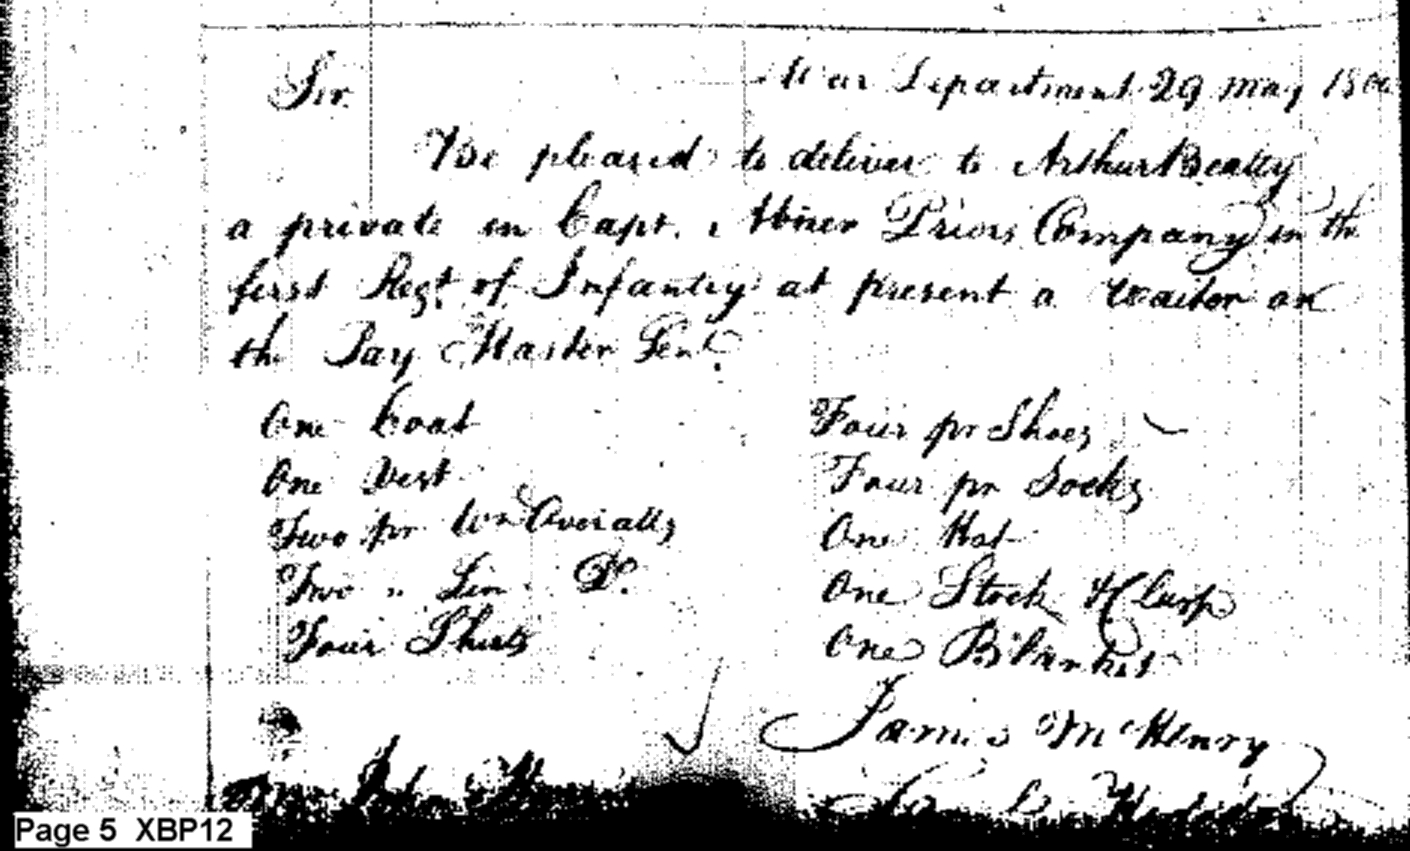 Sir. War Department 29 May 1800
Be pleased to deliver to Arthur Beatty
a private in Capt. Abner Priors Company in the
first Regt. of Infantry at present a waitor on
the Pay Master Genl.
One Coat
One Vest
Two pr Wn Overalls
Two " Lin Do.
Four Shirts
Four pr Shoes
Four pr Socks
One Hat
One Stock & Clasp
One Blanket
James McHenry
Page 5 XBP12